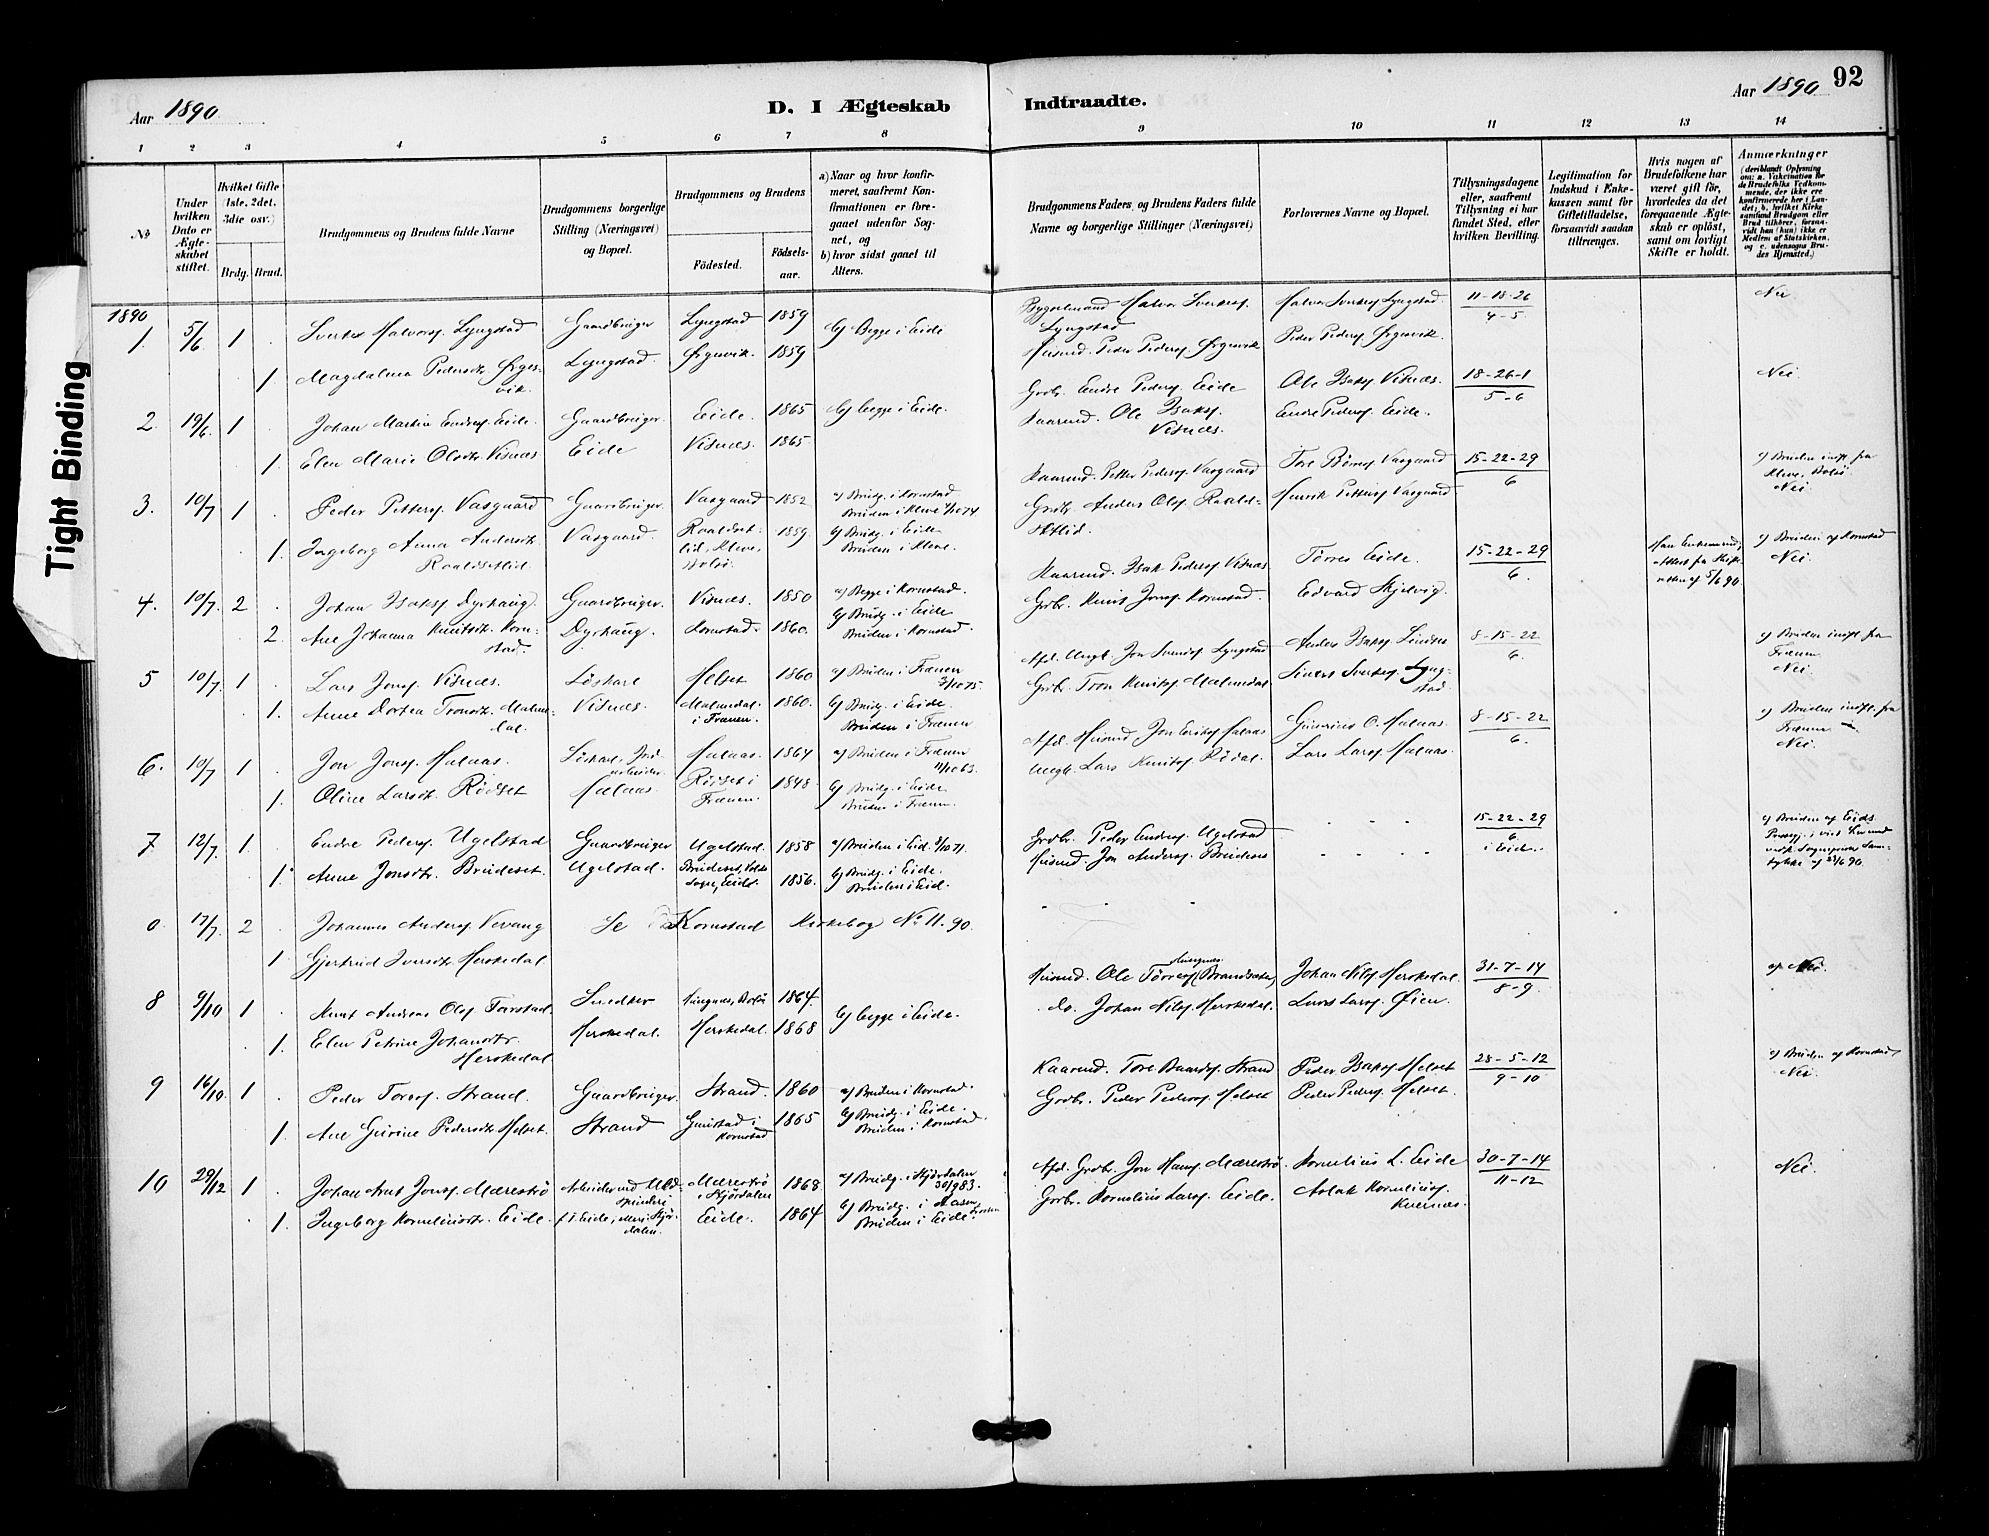 Tight Binding
Aar 1890
D. I Ægteskab Indtraadte.
Aar 1890
92
1 2 3 4 5 6 7 8 9 10 11 12 13 14
No
Under hvilken Dato er Ægteskabet stiftet.
Hvilket Gifte (1ste, 2det, 3die osv.)
Brdg. Brud.
Brudgommens og Brudens fulde Navne
Brudgommens borgerlige Stilling (Næringsvei) og Bopæl.
Brudgommens og Brudens
Födested.
Födselsaar.
a) Naar og hvor konfirmeret, saafremt Konfirmationen er foregaaet udenfor Sognet, og
b) hvor sidst gaaet til Alters.
Brudgommens Faders og Brudens Faders fulde Navne og borgerlige Stillinger (Næringsvei)
Forlovernes Navne og Bopæl.
Tillysningsdagene eller, saafremt Tillysning ei har fundet Sted, efter hvilken Bevilling.
Legitimation for Indskud i Enkekassen samt for Giftetilladelse, forsaavidt saadan tiltrænges.
Hvis nogen af Brudefolkene har været gift för, hvorledes da det foregaaende Ægteskab er oplöst, samt om lovligt Skifte er holdt.
Anmærkninger
(deriblandt Oplysning om: a. Vakcination for de Brudefolks Vedkommende, der ikke ere konfirmerede her i Landet; b. hvilket Kirkesamfund Brudgom eller Brud tilhörer, forsaavidt han (hun) ikke er Medlem af Statskirken, og c. udensogns Brudes Hjemsted.)
1890
1. 5/6 1 Sivert Halvors. Lyngstad Gaardbruger Lyngstad 1859 b) Begge i Eide Halvor Sivertss. Lyngstad Halvor Sivertss. Lyngstad 11-18-26/4-5 Nei
1 Magdalena Pedersdtr. Ørgesvik Lyngstad Ørgesvik 1859 Husmd. Peder Peders. Ørgesvik Peder Peders. Ørgesvik
2. 19/6 1 Johan Martin Endres. Eide Gaardbruger Eide 1865 b) begge i Eide Grbr. Endre Peders. Eide Ole Isaks. Visnæs 18-26-1/5-6 Nei
1. Elen Marie Olsdtr. Visnæs Eide Visnæs 1865 Kaarmd. Ole Isaks. Visnæs Endre Peders. Eide
3. 10/7 1 Peder Petters. Vasgaard Gaardbruger Vasgaard 1852 a) Brudg. i Kornstad Bruden i Kleve 1/10 74 Kaarmd. Petter Peders. Vasgaard Tore Vasgaard 15-22-29/6 c) Bruden indfl. fra Kleve, Bolsö Nei
1. Ingeborg Anna Andersdtr. Roaldsetlid Vasgaard Roaldsetlid, Kleve, Bolsö 1859 b) Brudg. i Eide Bruden i Kleve. Grbr. Anders Ols. Roaldsetlid. Henrik Petters. Vasgaard
4. 10/7 2 Johan Isaks. Dyrhaug Gaardbruger Visnæs 1850 a) Begge i Kornstad Kaarmd. Isak Peders. Visnæs Törres Eide 15-22-29/6 Han Enkemand, attest fra Skifteretten af 5/6 90 c) Bruden af Kornstad Nei
2. Ane Johanna Knutsdtr. Kornstad. Dyrhaug. Kornstad 1860 b) Brudg. i Eide Bruden i Kornstad Grbr. Knut Jons. Kornstad. Edvard Skjelvig
5 10/7 1 Lars Jons. Visnæs Löskarl Helset 1860 a) Bruden i Frænen 3/10 75 Afd. Ungk. Jon Lyngstad Anders Isaks. 8-15-22/6. c) Bruden indfl. fra Frænen Nei
1. Anne Dortea Tronsdtr. Malmedal. Visnæs Malmedal i Frænen. 1860 b) Brudg. i Eide Bruden i Frænen Grbr. Tron Knuts. Malmedal Sivert Siverts. Lyngstad
6. 10/7 1 Jon Jons. Halaas. Löskarl, Jordarbeider Halaas 1864 a) Bruden i Frænen 11/10 63 Afd. Husmd. Jon Halaas O. Halaas 8-15-22/6. c) Bruden indfl. fra Frænen Nei
1. Oline Larsdtr. Rödset Halaas Rödset i Frænen 1848 b) Brudg. i Eide Bruden i Frænen Ungk. Lars Knuts. Rödal. Lars Lars. Halaas.
7. 12/7 1. Endre Peders. Ugelstad Gaardbruger Ugelstad 1858 a) Bruden i Eid 71. Grbr. Peder Endres. Ugelstad 15-22-29/6 i Eid c) Bruden af Eids
1. Anne Jonsdtr. Brudeset. Ugelstad. Brudeset, Sogn, Eids 1856. b) Brudg. i Eide. Bruden i Eid. Husmd. Jon Anders. Brudeset
0 17/7 2 Johannes Anders. Vevang Se Kornstad Kirkebog No 11. 90.
1. Gjertrud Iversdtr. Herskedal
8 9/10 1 Knut Andreas Ols. Tarstad Snedker Bolsö 1864 b) begge i Eide. Husmd. Ole Törress. (Brandsæter) Johan Nils. Herskedal 31-7-14/8-9. Nei.
1. Elen Petrine Johansdtr. Herskedal Herskedal Herskedal 1868 do. Johan Nils. Herskedal Lars. Øien
9 16/10 1 Peder Tores. Strand. Gaardbruger Strand 1860 a) Bruden i Kornstad Kaarmd. Tore Baards. Strand Peder Isaks. Helset 28-5-12/9-10 c) Bruden af Kornstad Nei
1. Ane Gurine Pedersdtr. Helset. Strand Gaustad i Kornstad 1865 b) Brudg. i Eide. Bruden i Kornstad Grbr. Peder Peders. Helset Peder Peders. Helset.
10 29/12 1 Johan Arnt Jons. Mæreströ Arbeider ved Uldspinderi Mæreströ i Stjördalen 1868 a) Brudg. i Stjördalen 30/9 83. Afd. Grbr. Jon Hans. Mæreströ Kornelius L. Eide 30-7-14/11-12 Nei
1. Ingeborg Korneliusdtr. Eide. f. T. Eide, Stjördalen Eide. 1864 b) Brudg. i Aasen Bruden i Eide Grbr. Kornelius Lars. Eide. Aslak Kornelius. Kvernæs.